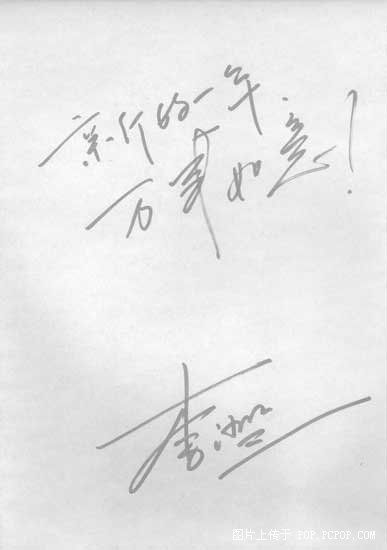 新的一年
万事如意!
李
图片上传于 POP.PCPOP.COM